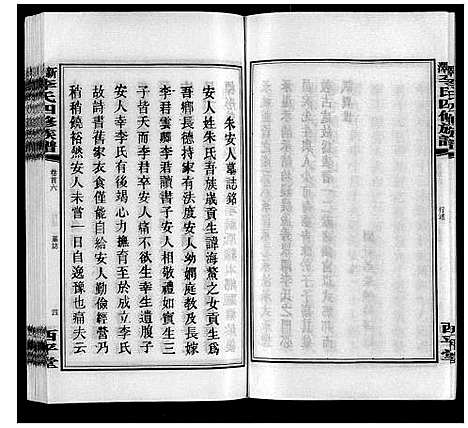 朱安人墓誌銘
安人姓朱氏吾族歲貢生諱海鰲之女貢生爲
吾鄉長德持家有法度安人幼嫻庭教及長嫁
李君雲卿李君讀書子安人相敬禮如賓生三
子皆夭而李君卒安人痛不欲生幸生遺腹子
安人幸李氏有後竭心力撫育至於成立李氏
故詩書舊家衣食僅能自給安人勤儉經營乃
稍稍饒裕然安人未嘗一日自逸豫也痛夫云
李氏四修族譜
卷首六
墓誌
四
西平堂
李氏四修族譜
行述
西平堂